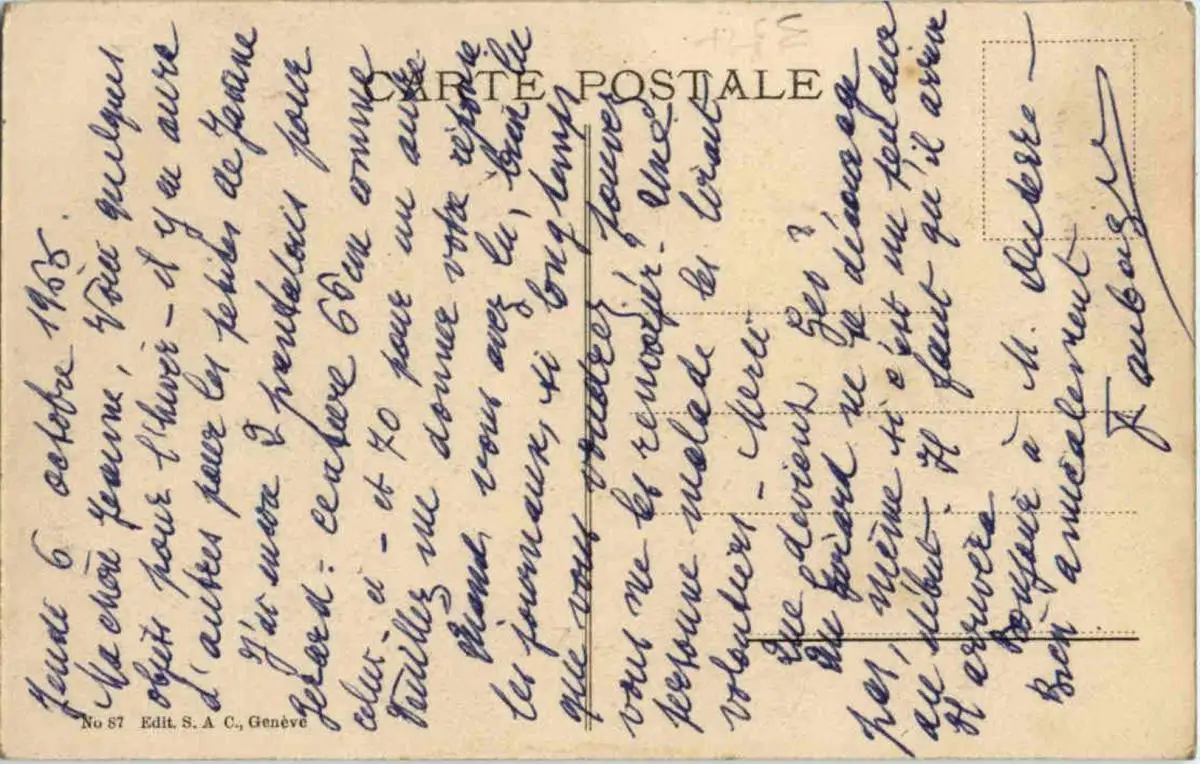 CARTE POSTALE
Jeudi 6 octobre 1955.
Ma chère Jeanne, Voici quelques
objets pour l'hiver - il y en aura
d'autres pour les petites de Jeane
J'ai encore 2 pantalons pour
Gérard : ceinture 66 cm comme
celui-ci - et 70 pour un autre
Veuillez me donner votre réponse
Quand vous avez lu, bien lu
les journaux, si longtemps
que vous voudrez, pouvez
vous me les renvoyer - Une
personne malade les lirait
volontiers - Merci
Que devient Geo ?
Que Gérard ne se décourage
pas, même si c'est un peu dur
au début. Il faut qu'il arrive
Il arrivera
Bonjour à M.
Bien amicalement
No 87 Edit. S. A C., Genève